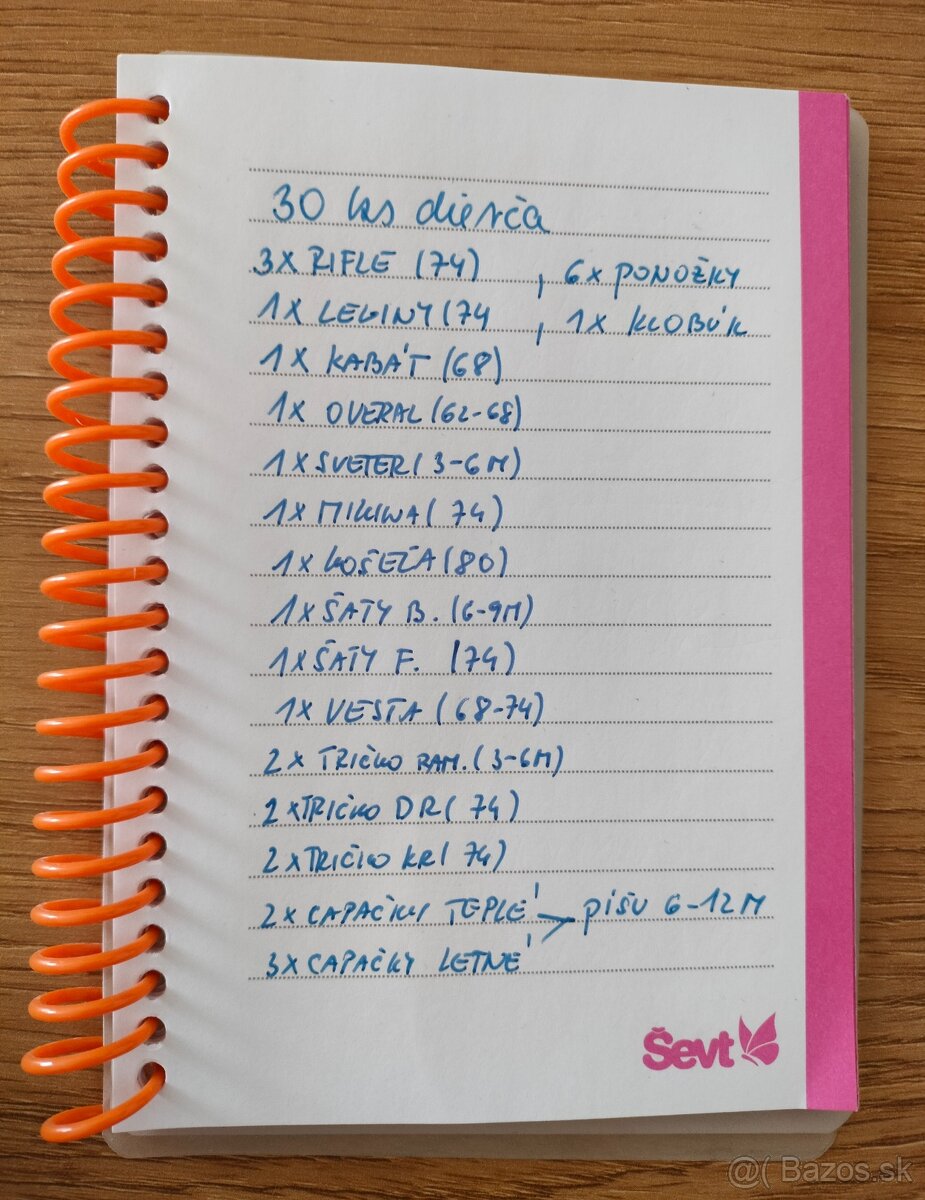 30 ks dievča
3X RIFLE (74) , 6x PONOŽKY
1X LEGINY (74 , 1X KLOBÚK
1X KABÁT (68)
1X OVERAL (62-68)
1X SVETER (3-6M)
1X MIKINA (74)
1X KOŠEĽA (80)
1X ŠATY B. (6-9M)
1X ŠATY F. (74)
1X VESTA (68-74)
2X TRIČKO RAM. (3-6M)
2XTRIČKO DR (74)
2XTRIČKO KR( 74)
2X CAPAČKY TEPLÉ píšu 6-12M
3X CAPAČKY LETNÉ
Ševt
@( Bazos.sk